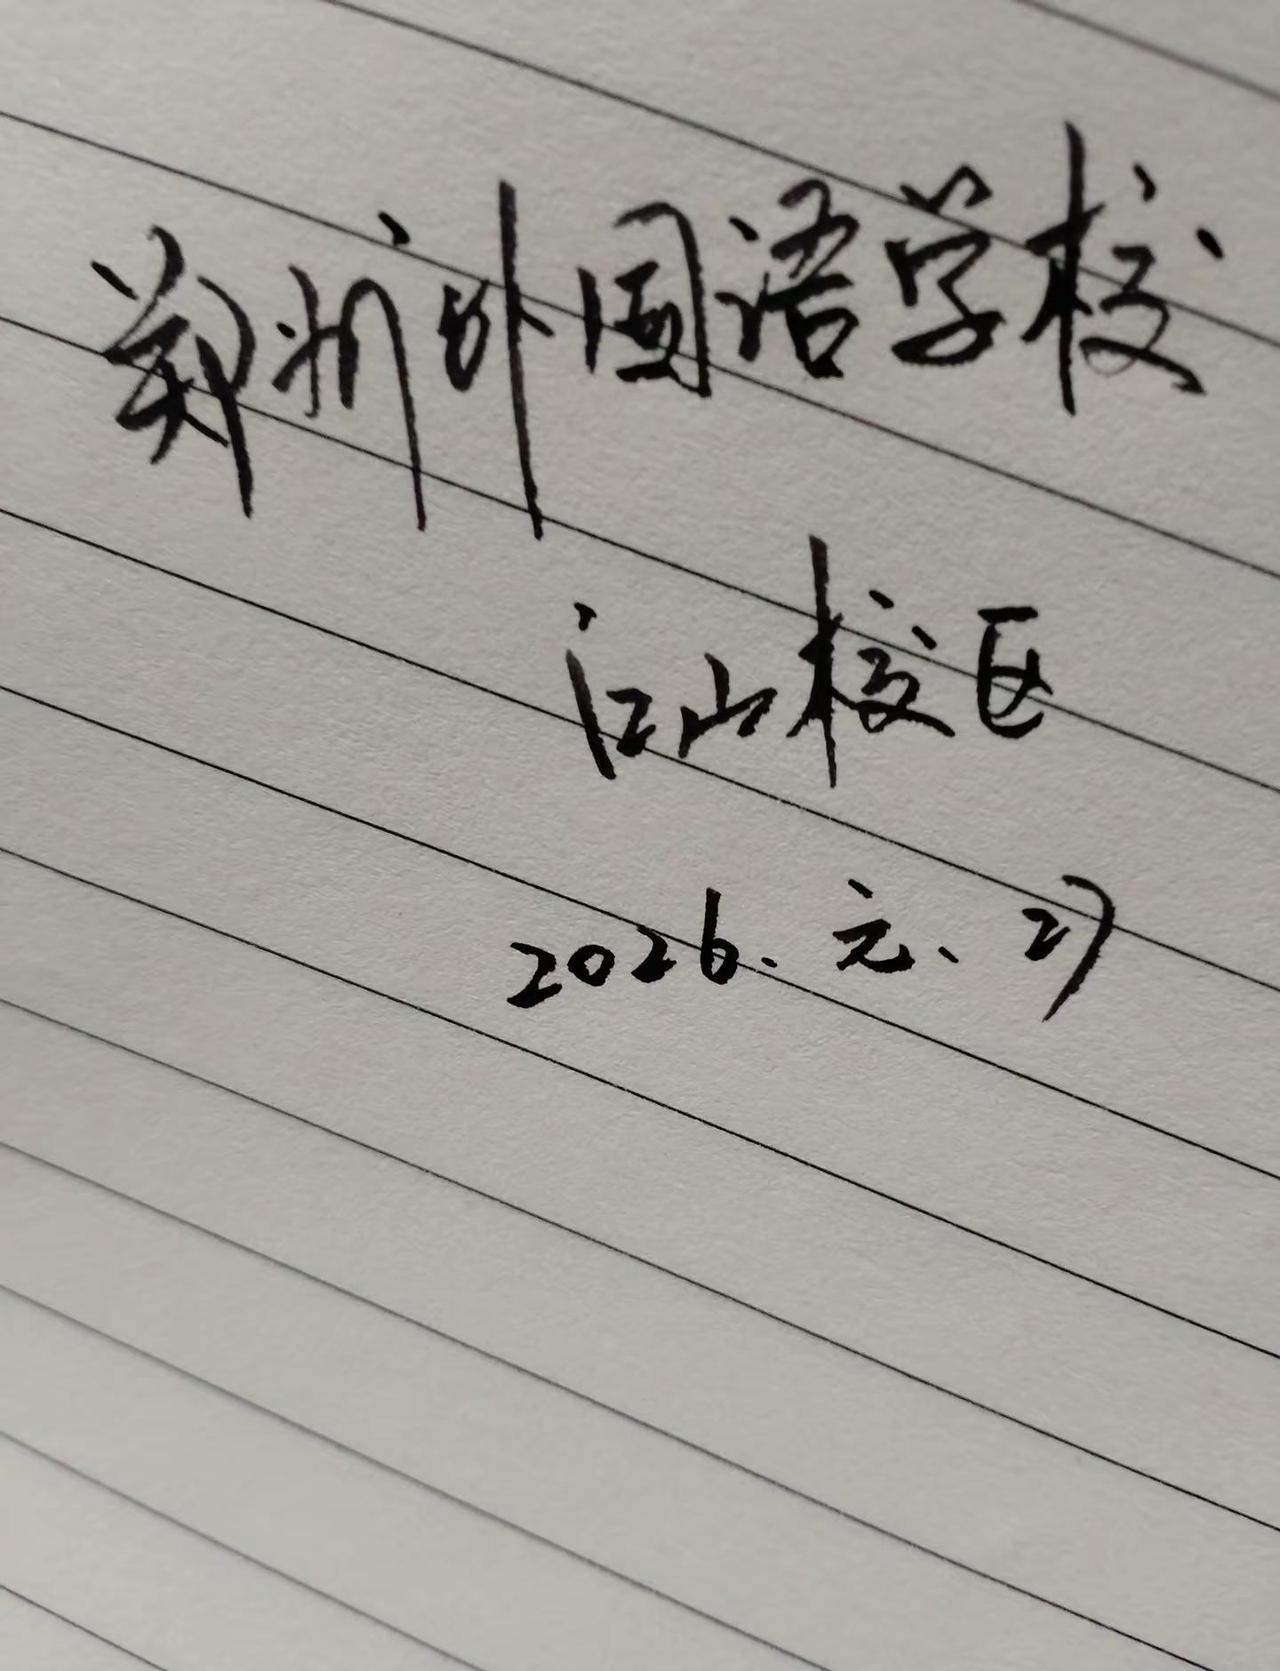 郑州外国语学校
江山校区
2026.元、27